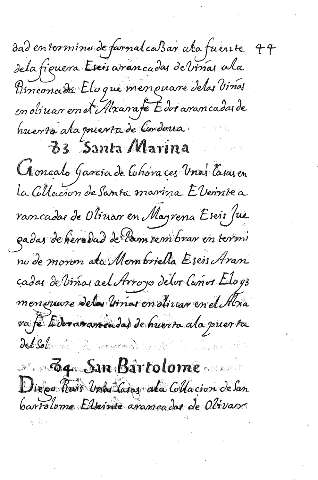 dad en termino de farnalcaBar ala fuente 44
dela figuera E seis arancadas de Viñas ala
Rinconada Elo que menguare delas Viñas
en olivar en el Axarafe E dos arancadas de
huerto ala puerta de Cordoua.
73 Santa Marina
Goncalo Garcia de Cohoraces Unas Casas en
la Collacion de Santa marina E Veinte a
rancadas de Olivar en Mayrena E seis Jue
gadas de heredad de Pan sembrar en termi
no de moron ala Membriella E seis Aran
cadas de Viñas a el Arroyo de los Caños Elo q̃
menguare delas Viñas en olivar en el Alxa
rafe E dos arancadas de huerta ala puerta
del Sol.
74 San Bartolome
Diego Ruis Unas Casas ala Collacion de San
bartolome E Veinte arancadas de Olivar